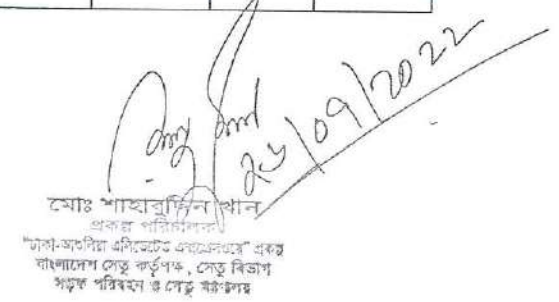 ২৬/09/2022
মোঃ শাহাবুদ্দিন খান
প্রকল্প পরিচালক
"ঢাকা-আশুলিয়া এলিভেটেড এক্সপ্রেসওয়ে" প্রকল্প
বাংলাদেশ সেতু কর্তৃপক্ষ, সেতু বিভাগ
সড়ক পরিবহন ও সেতু মন্ত্রণালয়